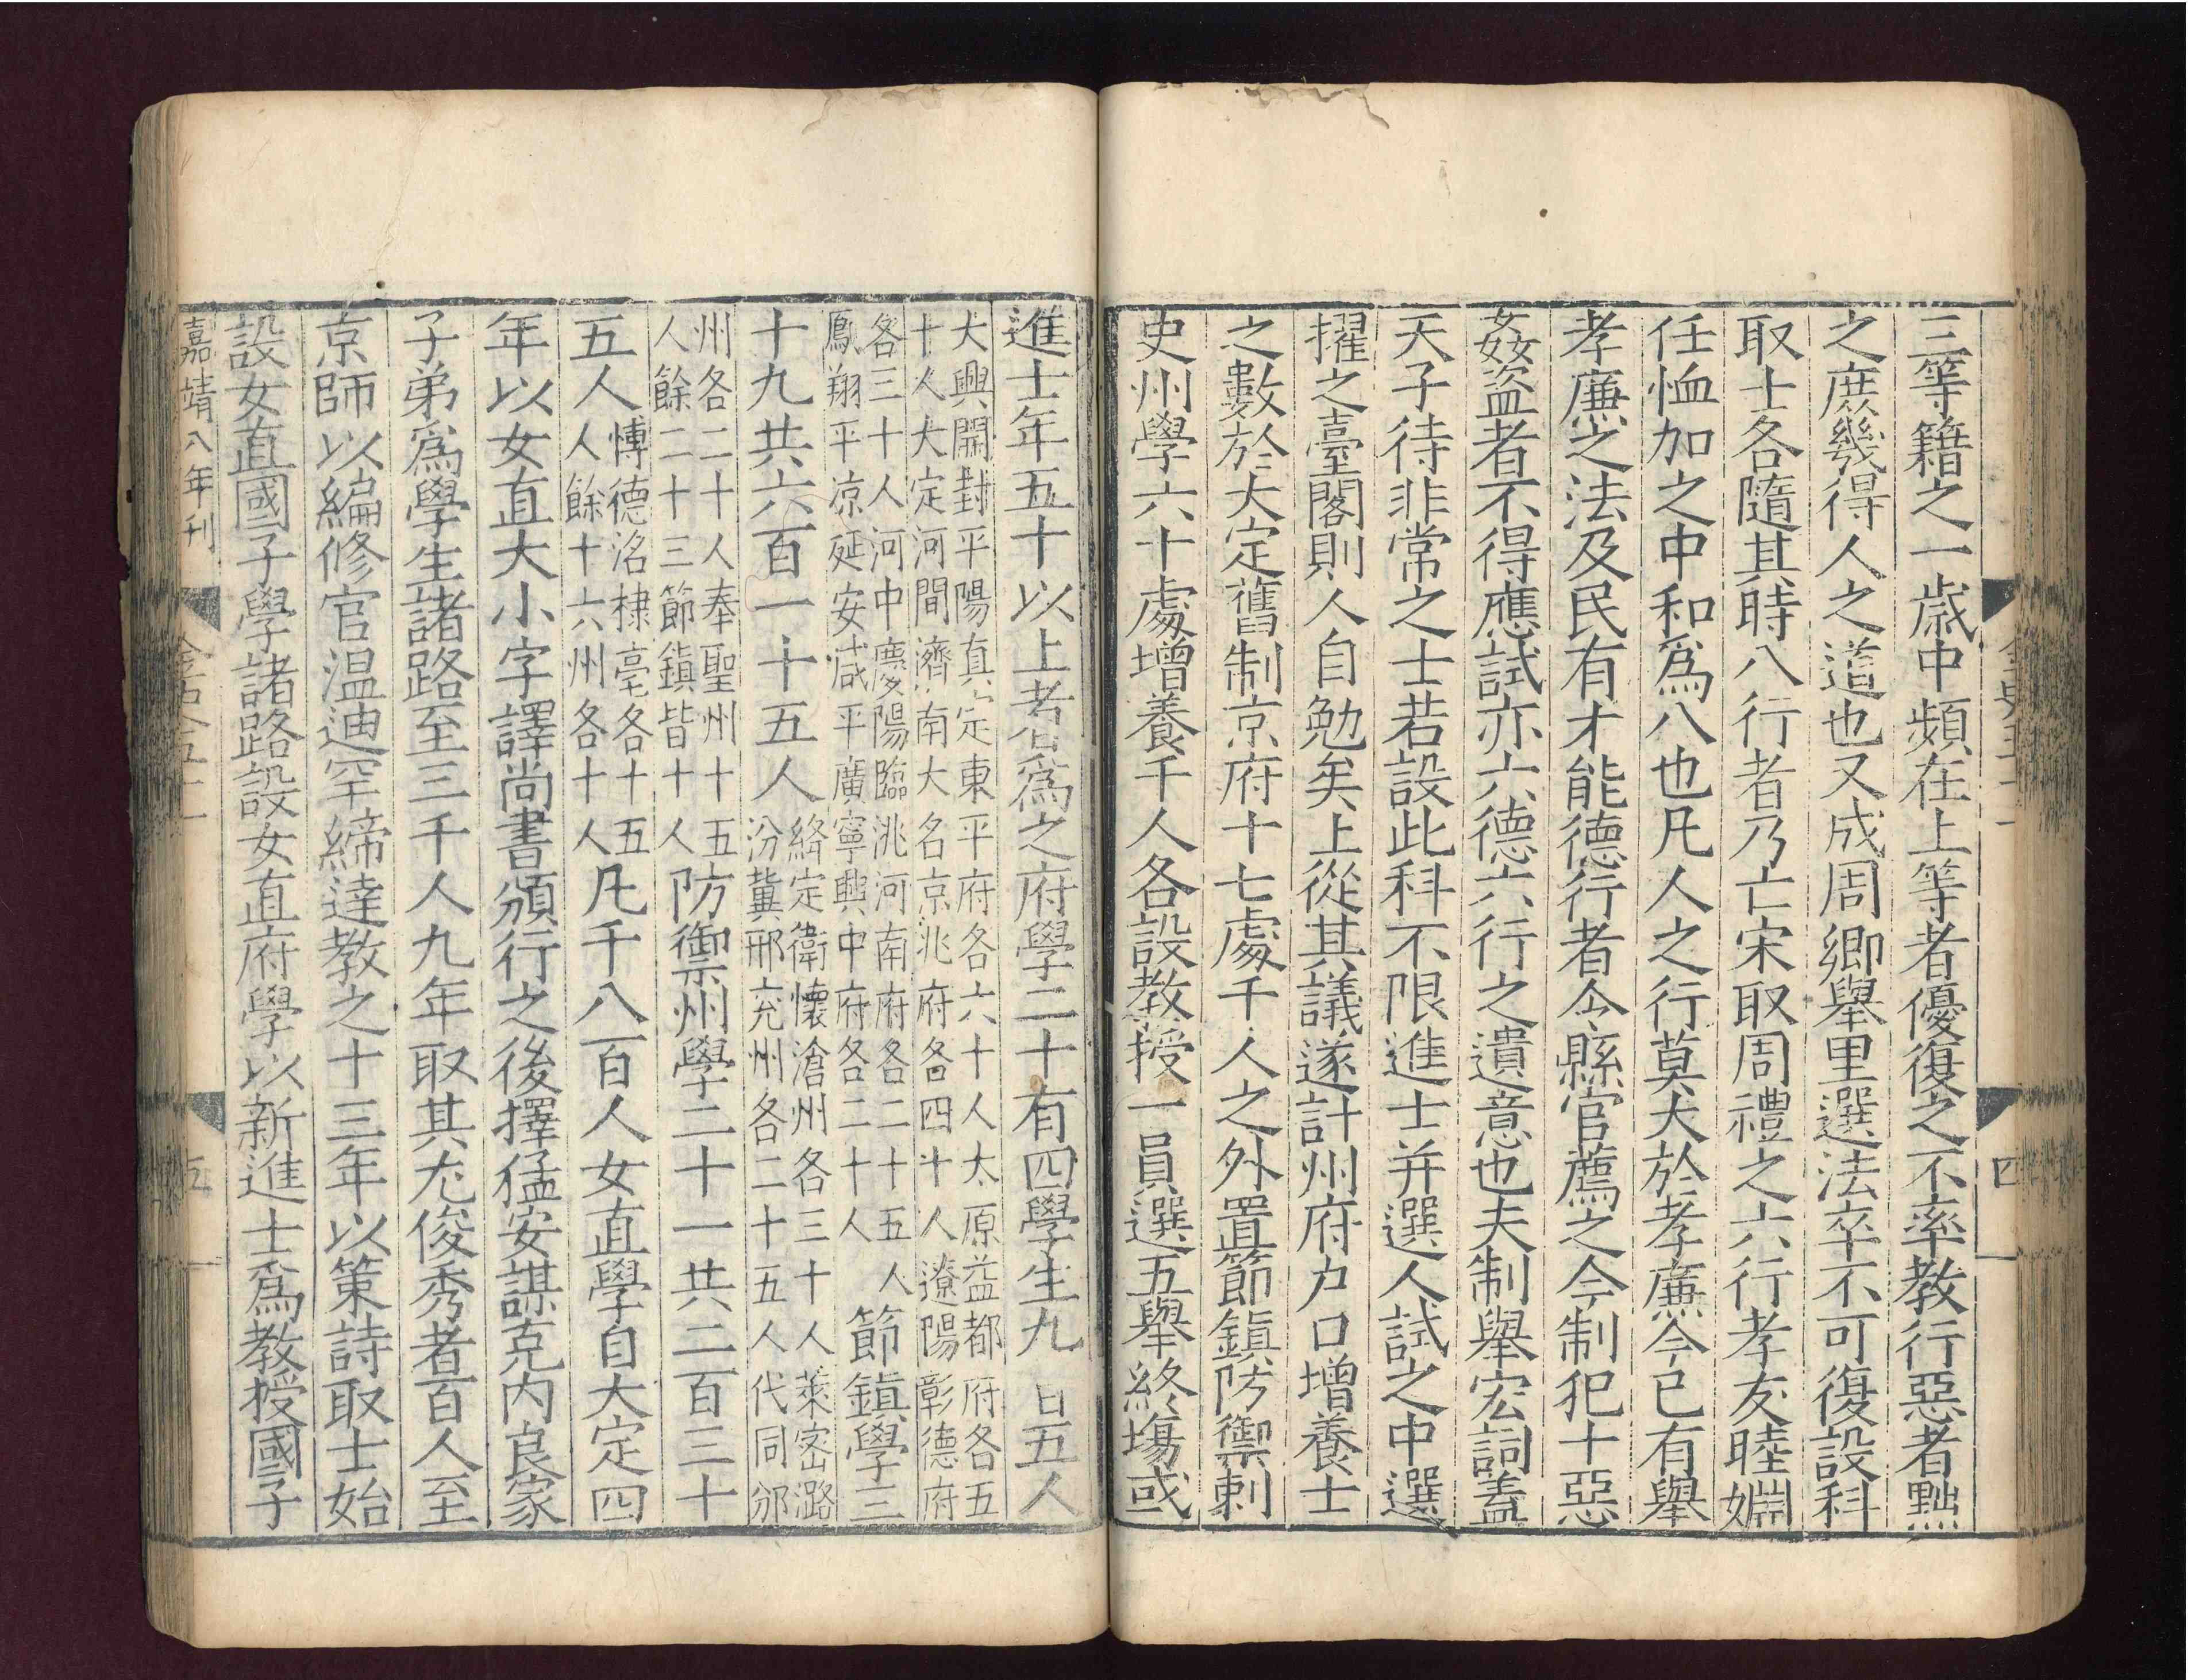 三等籍之一歲中頻在上等者優復之不率教行惡者黜
之庶幾得人之道也又成周鄉舉里選法卒不可復設科
取士各隨其時八行者乃亡宋取周禮之六行孝友睦婣
任恤加之中和爲八也凡人之行莫大於孝廉今已有舉
孝廉之法及民有才能德行者令縣官薦之今制犯十惡
姦盜者不得應試亦六德六行之遺意也夫制舉宏詞蓋
天子待非常之士若設此科不限進士并選人試之中選
擢之臺閣則人自勉矣上從其議遂計州府户口增養士
之數於大定舊制京府十七處千人之外置節鎮防禦刺
史州學六十處增養千人各設教授一員選五舉終場或
金史五十一
四
進士年五十以上者爲之府學二十有四學生九百五人
大興開封平陽真定東平府各六十人太原益都府各五
十人大定河間濟南大名京兆府各四十人遼陽彰德府
各三十人河中慶陽臨洮河南府各二十五人
鳳翔平凉延安咸平廣寧興中府各二十人
節鎮學三
十九共六百一十五人
絳定衛懷滄州各三十人萊密潞
汾冀邢兖州各二十五人代同邠
州各二十人奉聖州十五
人餘二十三節鎮皆十人
防禦州學二十一共二百三十
五人
博德洺棣亳各十五
人餘十六州各十人
凡千八百人女直學自大定四
年以女直大小字譯尚書頒行之後擇猛安謀克內良家
子弟爲學生諸路至三千人九年取其尤俊秀者百人至
京師以編修官温迪罕締達教之十三年以策詩取士始
設女直國子學諸路設女直府學以新進士爲教授國子
嘉靖八年刊
金史五十一
五